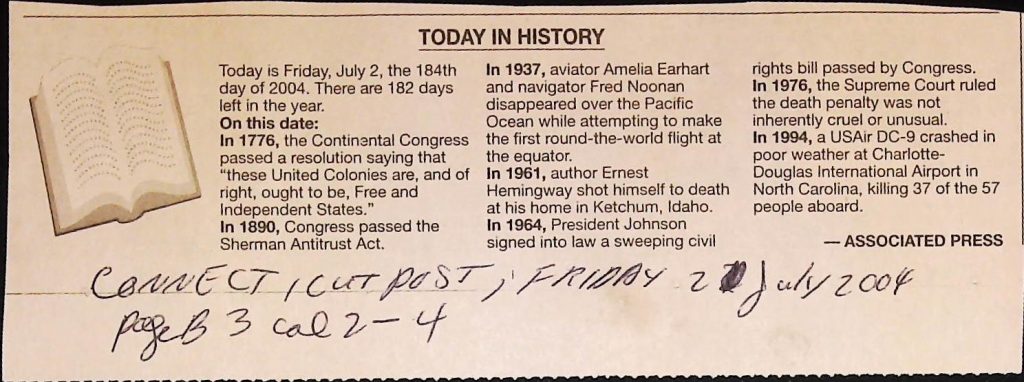 TODAY IN HISTORY
Today is Friday, July 2, the 184th
day of 2004. There are 182 days
left in the year.
On this date:
In 1776, the Continental Congress
passed a resolution saying that
“these United Colonies are, and of
right, ought to be, Free and
Independent States.”
In 1890, Congress passed the
Sherman Antitrust Act.
In 1937, aviator Amelia Earhart
and navigator Fred Noonan
disappeared over the Pacific
Ocean while attempting to make
the first round-the-world flight at
the equator.
In 1961, author Ernest
Hemingway shot himself to death
at his home in Ketchum, Idaho.
In 1964, President Johnson
signed into law a sweeping civil
rights bill passed by Congress.
In 1976, the Supreme Court ruled
the death penalty was not
inherently cruel or unusual.
In 1994, a USAir DC-9 crashed in
poor weather at Charlotte-
Douglas International Airport in
North Carolina, killing 37 of the 57
people aboard.
— ASSOCIATED PRESS
CONNECTICUT POST, FRIDAY 2 July 2004
page B 3 col 2-4